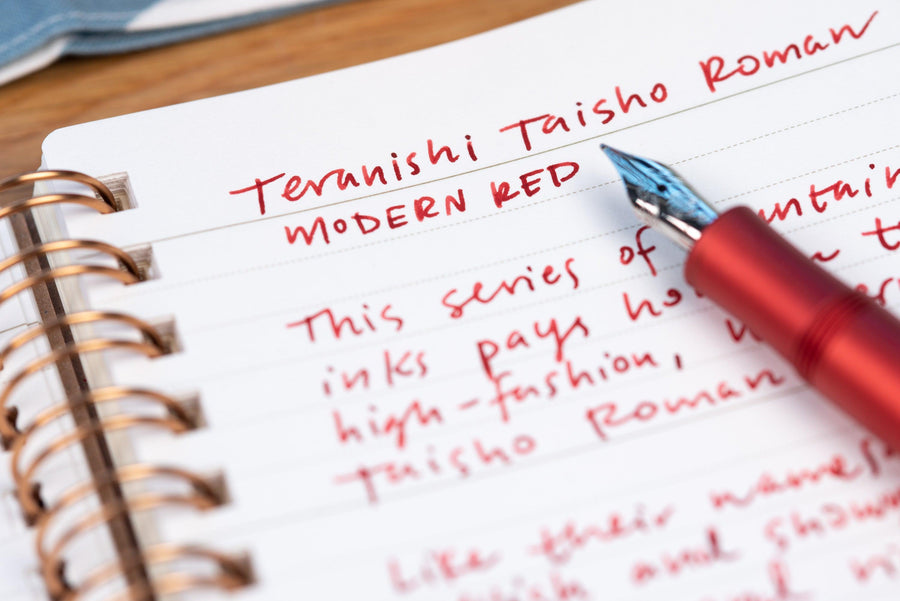 Teranishi Taisho Roman
MODERN RED
This series of
inks pays
high-fashion,
Taisho Roman
Like their names
and